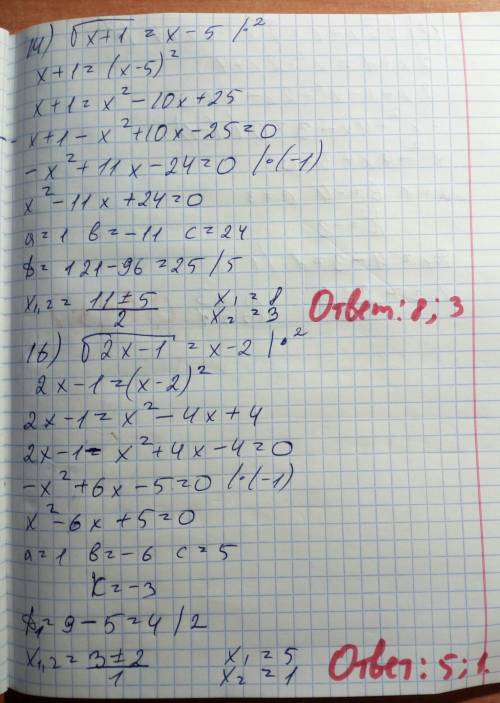 14) √x+1 = x-5 /·²
x+1 = (x-5)²
x+1 = x²-10x+25
x+1-x²+10x-25=0
-x²+11x-24=0 /·(-1)
x²-11x+24=0
a=1 b=-11 c=24
D=121-96=25/5
x₁,₂ = 11±5 / 2 x₁=8 x₂=3 Ответ: 8; 3
16) √2x-1 = x-2 /·²
2x-1=(x-2)²
2x-1=x²-4x+4
2x-1-x²+4x-4=0
-x²+6x-5=0 /·(-1)
x²-6x+5=0
a=1 b=-6 c=5
K=-3
D₁=9-5=4/2
x₁,₂ = 3±2 / 1 x₁=5 x₂=1 Ответ: 5; 1